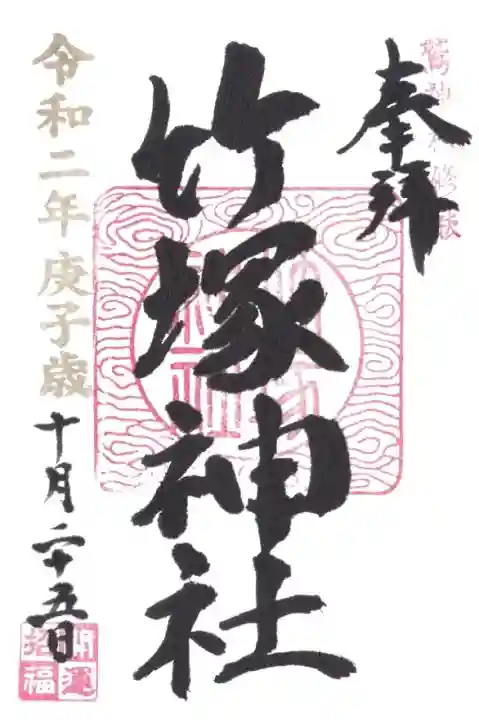 奉拝
竹塚神社
令和二年庚子歳
十月二十五日
開運
招福